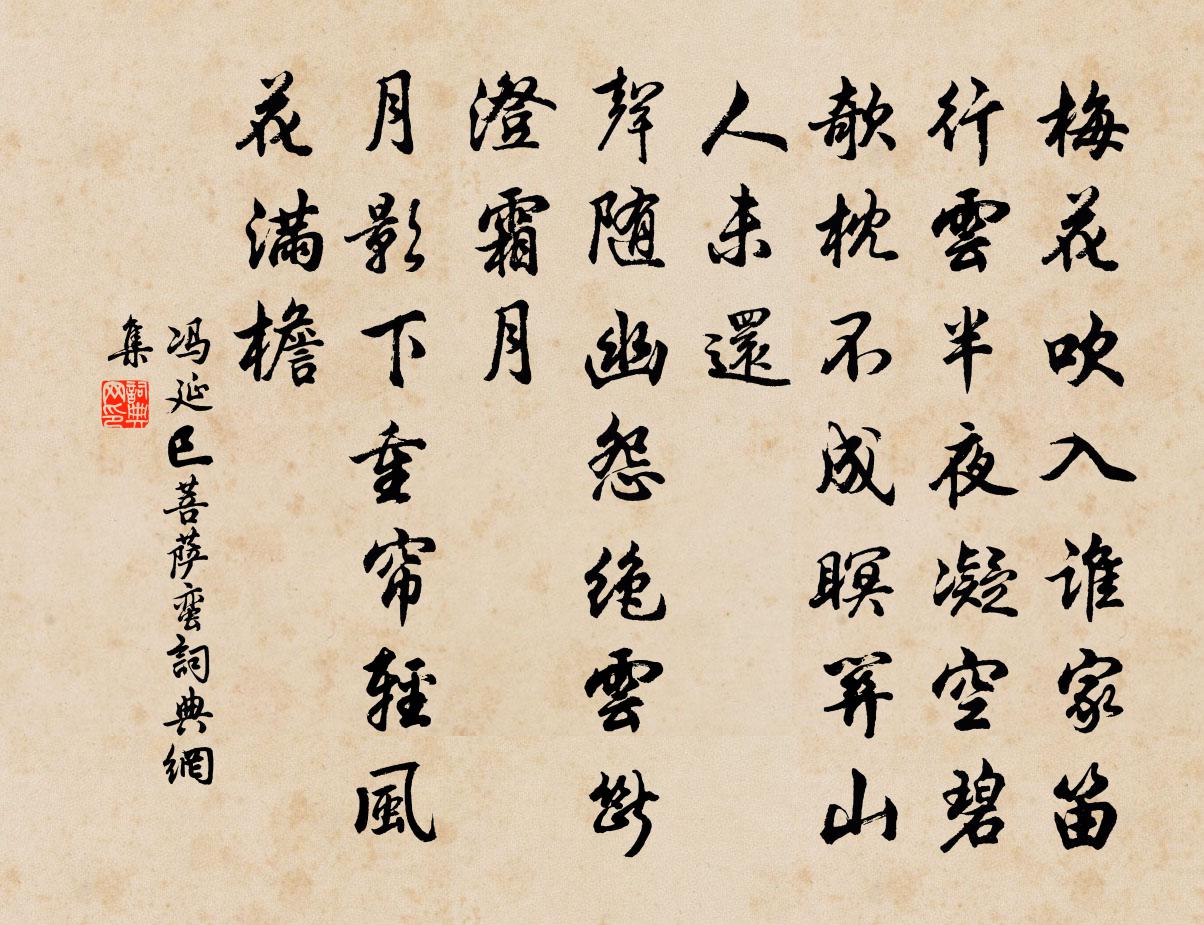 梅花吹入誰家笛
行雲半夜凝空碧
欹枕不成瞑關山
人未還
聲随幽怨絶雲斷
澄霜月
月影下重帘輕風
花滿檐
冯延巳菩萨蛮詞典網
集
詞典网印